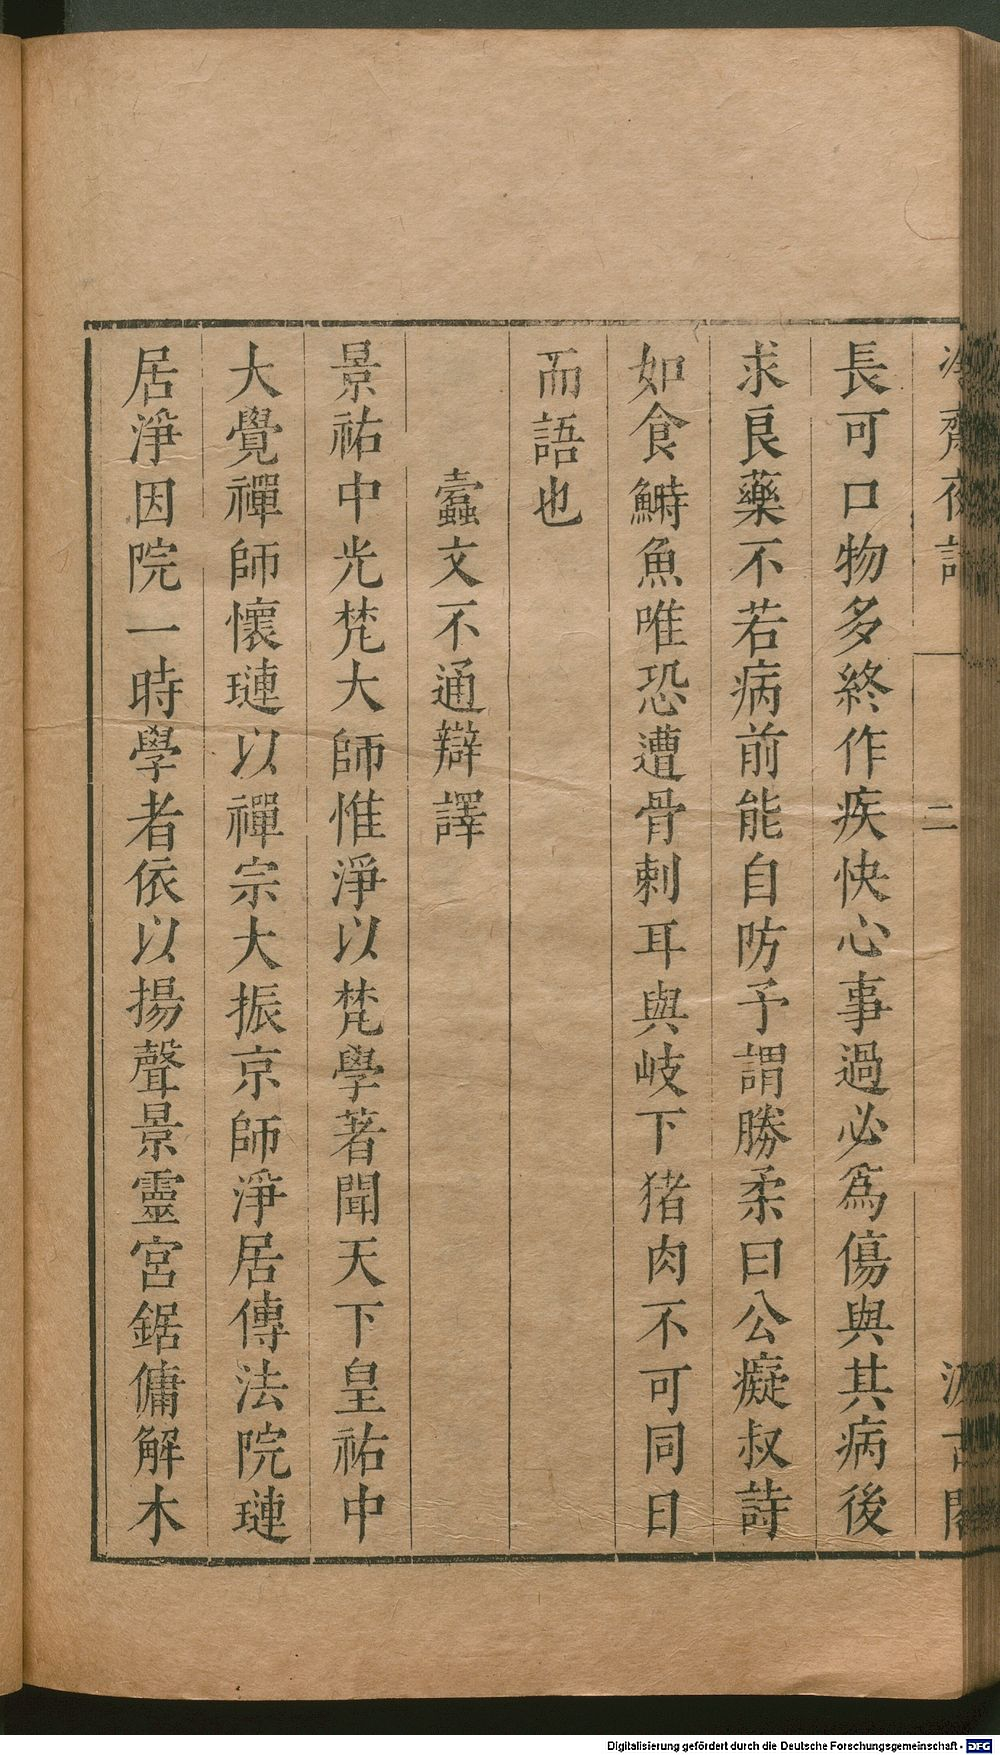 冷齋夜話 二 汲古閣
長可口物多終作疾快心事過必爲傷與其病後
求良藥不若病前能自防予謂勝柔曰公癡叔詩
如食鰣魚唯恐遭骨刺耳與岐下猪肉不可同日
而語也
蠹文不通辯譯
景祐中光梵大師惟淨以梵學著聞天下皇祐中
大覺禪師懷璉以禪宗大振京師淨居傳法院璉
居淨因院一時學者依以揚聲景靈宮鋸傭解木
Digitalisierung gefördert durch die Deutsche Forschungsgemeinschaft - DFG